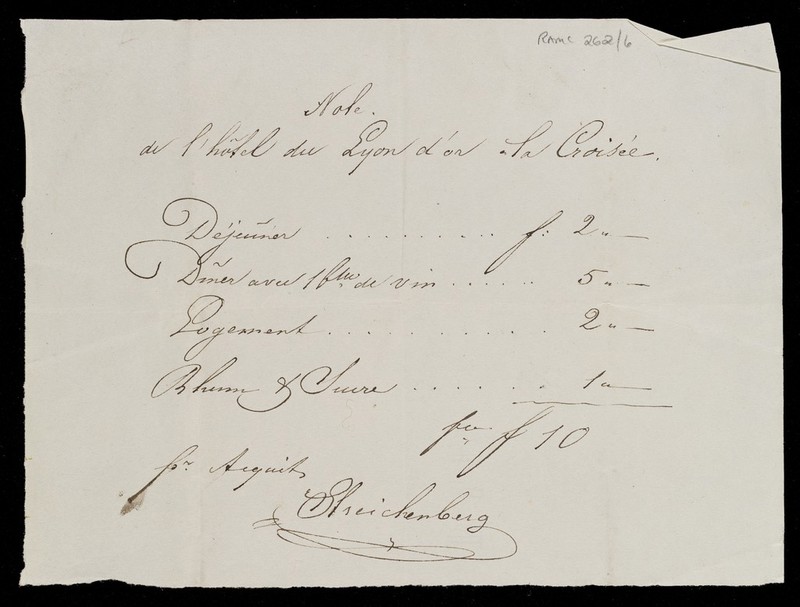 RAMC 262/6
Note.
de l'hôtel du Lyon d'or à la Croisée.
Déjeûner . . . . . . . . . . f: 2 " —
Dîner avec 1 b^lle de vin . . . . . . 5 " —
Logement . . . . . . . . . . . 2 " —
Rhum & Sucre . . . . . . . 1 " —
fcs f 10
p^r Acquit
Streichenberg